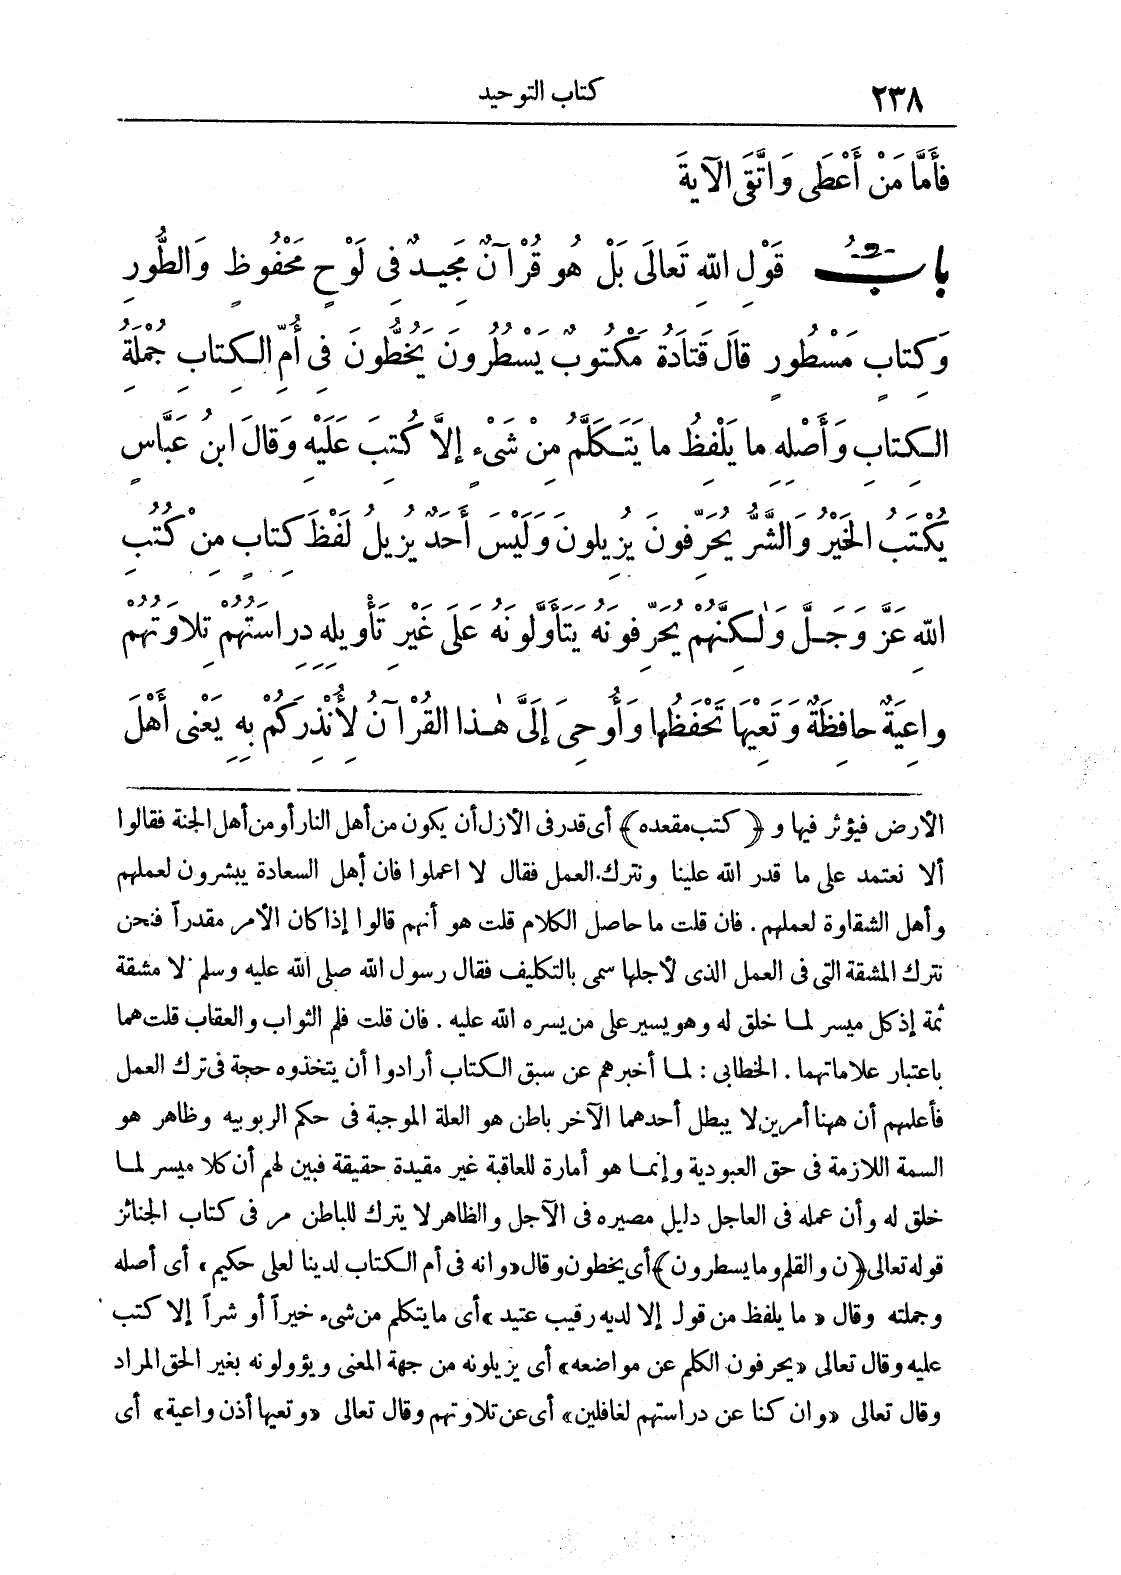 ٢٣٨ كتاب التوحيد
فَأَمَّا مَنْ أَعْطَى وَاتَّقَى الآيَةَ
بابُ قَوْلِ اللهِ تَعالَى بَلْ هُوَ قُرْآنٌ مَجِيدٌ فِى لَوْحٍ مَحْفُوظٍ وَالطُّورِ
وَكِتابٍ مَسْطُورٍ قالَ قَتَادَةُ مَكْتوبٌ يَسْطُرُونَ يَخُطُّونَ فِى أُمِّ الكِتابِ جُمْلَةُ
الكِتابِ وَأَصْلِهِ ما يَلْفِظُ ما يَتَكَلَّمُ مِنْ شَىْءٍ إلَّا كُتِبَ عَلَيْهِ وَقالَ ابنُ عَبَّاسٍ
يُكْتَبُ الخَيْرُ وَالشَّرُّ يُحَرِّفونَ يُزِيلونَ وَلَيْسَ أَحَدٌ يُزِيلُ لَفْظَ كِتابٍ مِنْ كُتُبِ
اللهِ عَزَّ وَجَلَّ وَلٰكِنَّهُمْ يُحَرِّفونَهُ يَتَأَوَّلونَهُ عَلَى غَيْرِ تَأْوِيلِهِ دِراسَتُهُمْ تِلاوَتُهُمْ
واعِيَةٌ حافِظَةٌ وَتَعِيَها تَحْفَظُها وَأُوحِىَ إلَىَّ هٰذا القُرْآنُ لِأُنْذِرَكُمْ بِهِ يَعْنِى أَهْلَ
الأرض فيؤثر فيها و ﴿كتب مقعده﴾ أى قدر فى الأزل أن يكون من أهل النار أو من أهل الجنة فقالوا
ألا نعتمد على ما قدر الله علينا ونترك العمل فقال لا اعملوا فان أهل السعادة ييشرون لعملهم
وأهل الشقاوة لعملهم . فان قلت ما حاصل الكلام قلت هو أنهم قالوا إذا كان الأمر مقدراً فنحن
نترك المشقة التى فى العمل الذى لأجلها سمى بالتكليف فقال رسول الله صلى الله عليه وسلم لا مشقة
ثمة إذ كل ميسر لما خلق له وهو يسير على من يسره الله عليه . فان قلت فلم الثواب والعقاب قلت هما
باعتبار علاماتهما . الخطابى : لما أخبرهم عن سبق الكتاب أرادوا أن يتخذوه حجة فى ترك العمل
فأعلمهم أن ههنا أمرين لا يبطل أحدهما الآخر باطن هو العلة الموجبة فى حكم الربوبيه وظاهر هو
السمة اللازمة فى حق العبودية وإنما هو أمارة للعاقبة غير مقيدة حقيقة فبين لهم أن كلا ميسر لما
خلق له وأن عمله فى العاجل دليل مصيره فى الآجل والظاهر لا يترك للباطن مر فى كتاب الجنائز
قوله تعالى ﴿ن والقلم وما يسطرون﴾ أى يخطون وقال «وانه فى أم الكتاب لدينا لعلى حكيم» أى أصله
وجملته وقال «ما يلفظ من قول إلا لديه رقيب عتيد» أى ما يتكلم من شىء خيراً أو شراً إلا كتب
عليه وقال تعالى «يحرفون الكلم عن مواضعه» أى يزيلونه من جهة المعنى ويؤولونه بغير الحق المراد
وقال تعالى «وان كنا عن دراستهم لغافلين» أى عن تلاوتهم وقال تعالى «وتعيها أذن واعية» أى